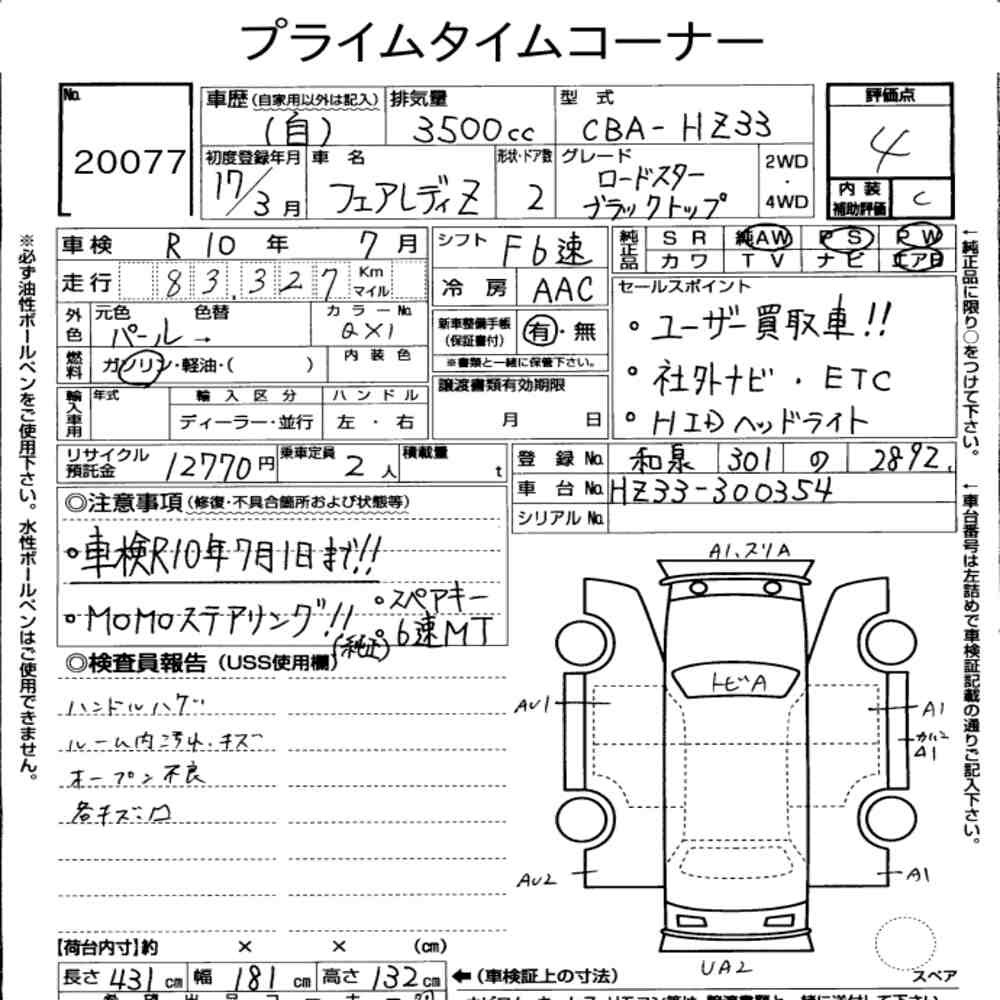 プライムタイムコーナー
No. 20077
車歴(自家用以外は記入) (自)
排気量 3500cc
型式 CBA-HZ33
評価点 4
内装補助評価 C
初度登録年月 17/3月
車名 フェアレディZ
形状・ドア数 2
グレード ロードスター
ブラックトップ
2WD・4WD
車検 R10年 7月
走行 83,327 Km マイル
外色 元色 パール→ 色替
カラーNo. QX1
燃料 ガソリン・軽油・( )
内装色
輸入車用 年式 輸入区分 ハンドル
ディーラー・並行 左・右
シフト F6速
冷房 AAC
新車整備手帳(保証書付) 有・無
※書類と一緒に保管下さい。
譲渡書類有効期限
月 日
純正品 SR 純AW PS PW
カワ TV ナビ エアB
セールスポイント
◦ユーザー買取車!!
◦社外ナビ・ETC
◦HIDヘッドライト
リサイクル預託金 12770円
乗車定員 2人
積載量 t
登録No. 和泉 301 の 2892
車台No. HZ33-300354
シリアルNo.
◎注意事項(修復・不具合箇所および状態等)
◦車検R10年7月1日まで!!
◦MOMOステアリング!!
◦スペアキー
(純正) 6速MT
◎検査員報告(USS使用欄)
ハンドルハゲ
ルーム内汚れ・キズ
オープン不良
各キズ凹
A1、スリA
トビA
AU1
A1
A1
AU2
A1
UA2
スペア
【荷台内寸】約 × × (cm)
長さ 431cm 幅 181cm 高さ 132cm
←(車検証上の寸法)
※必ず油性ボールペンをご使用下さい。水性ボールペンはご使用できません。
←純正品に限り○をつけて下さい。
←車台番号は左詰めで車検証記載の通りご記入下さい。